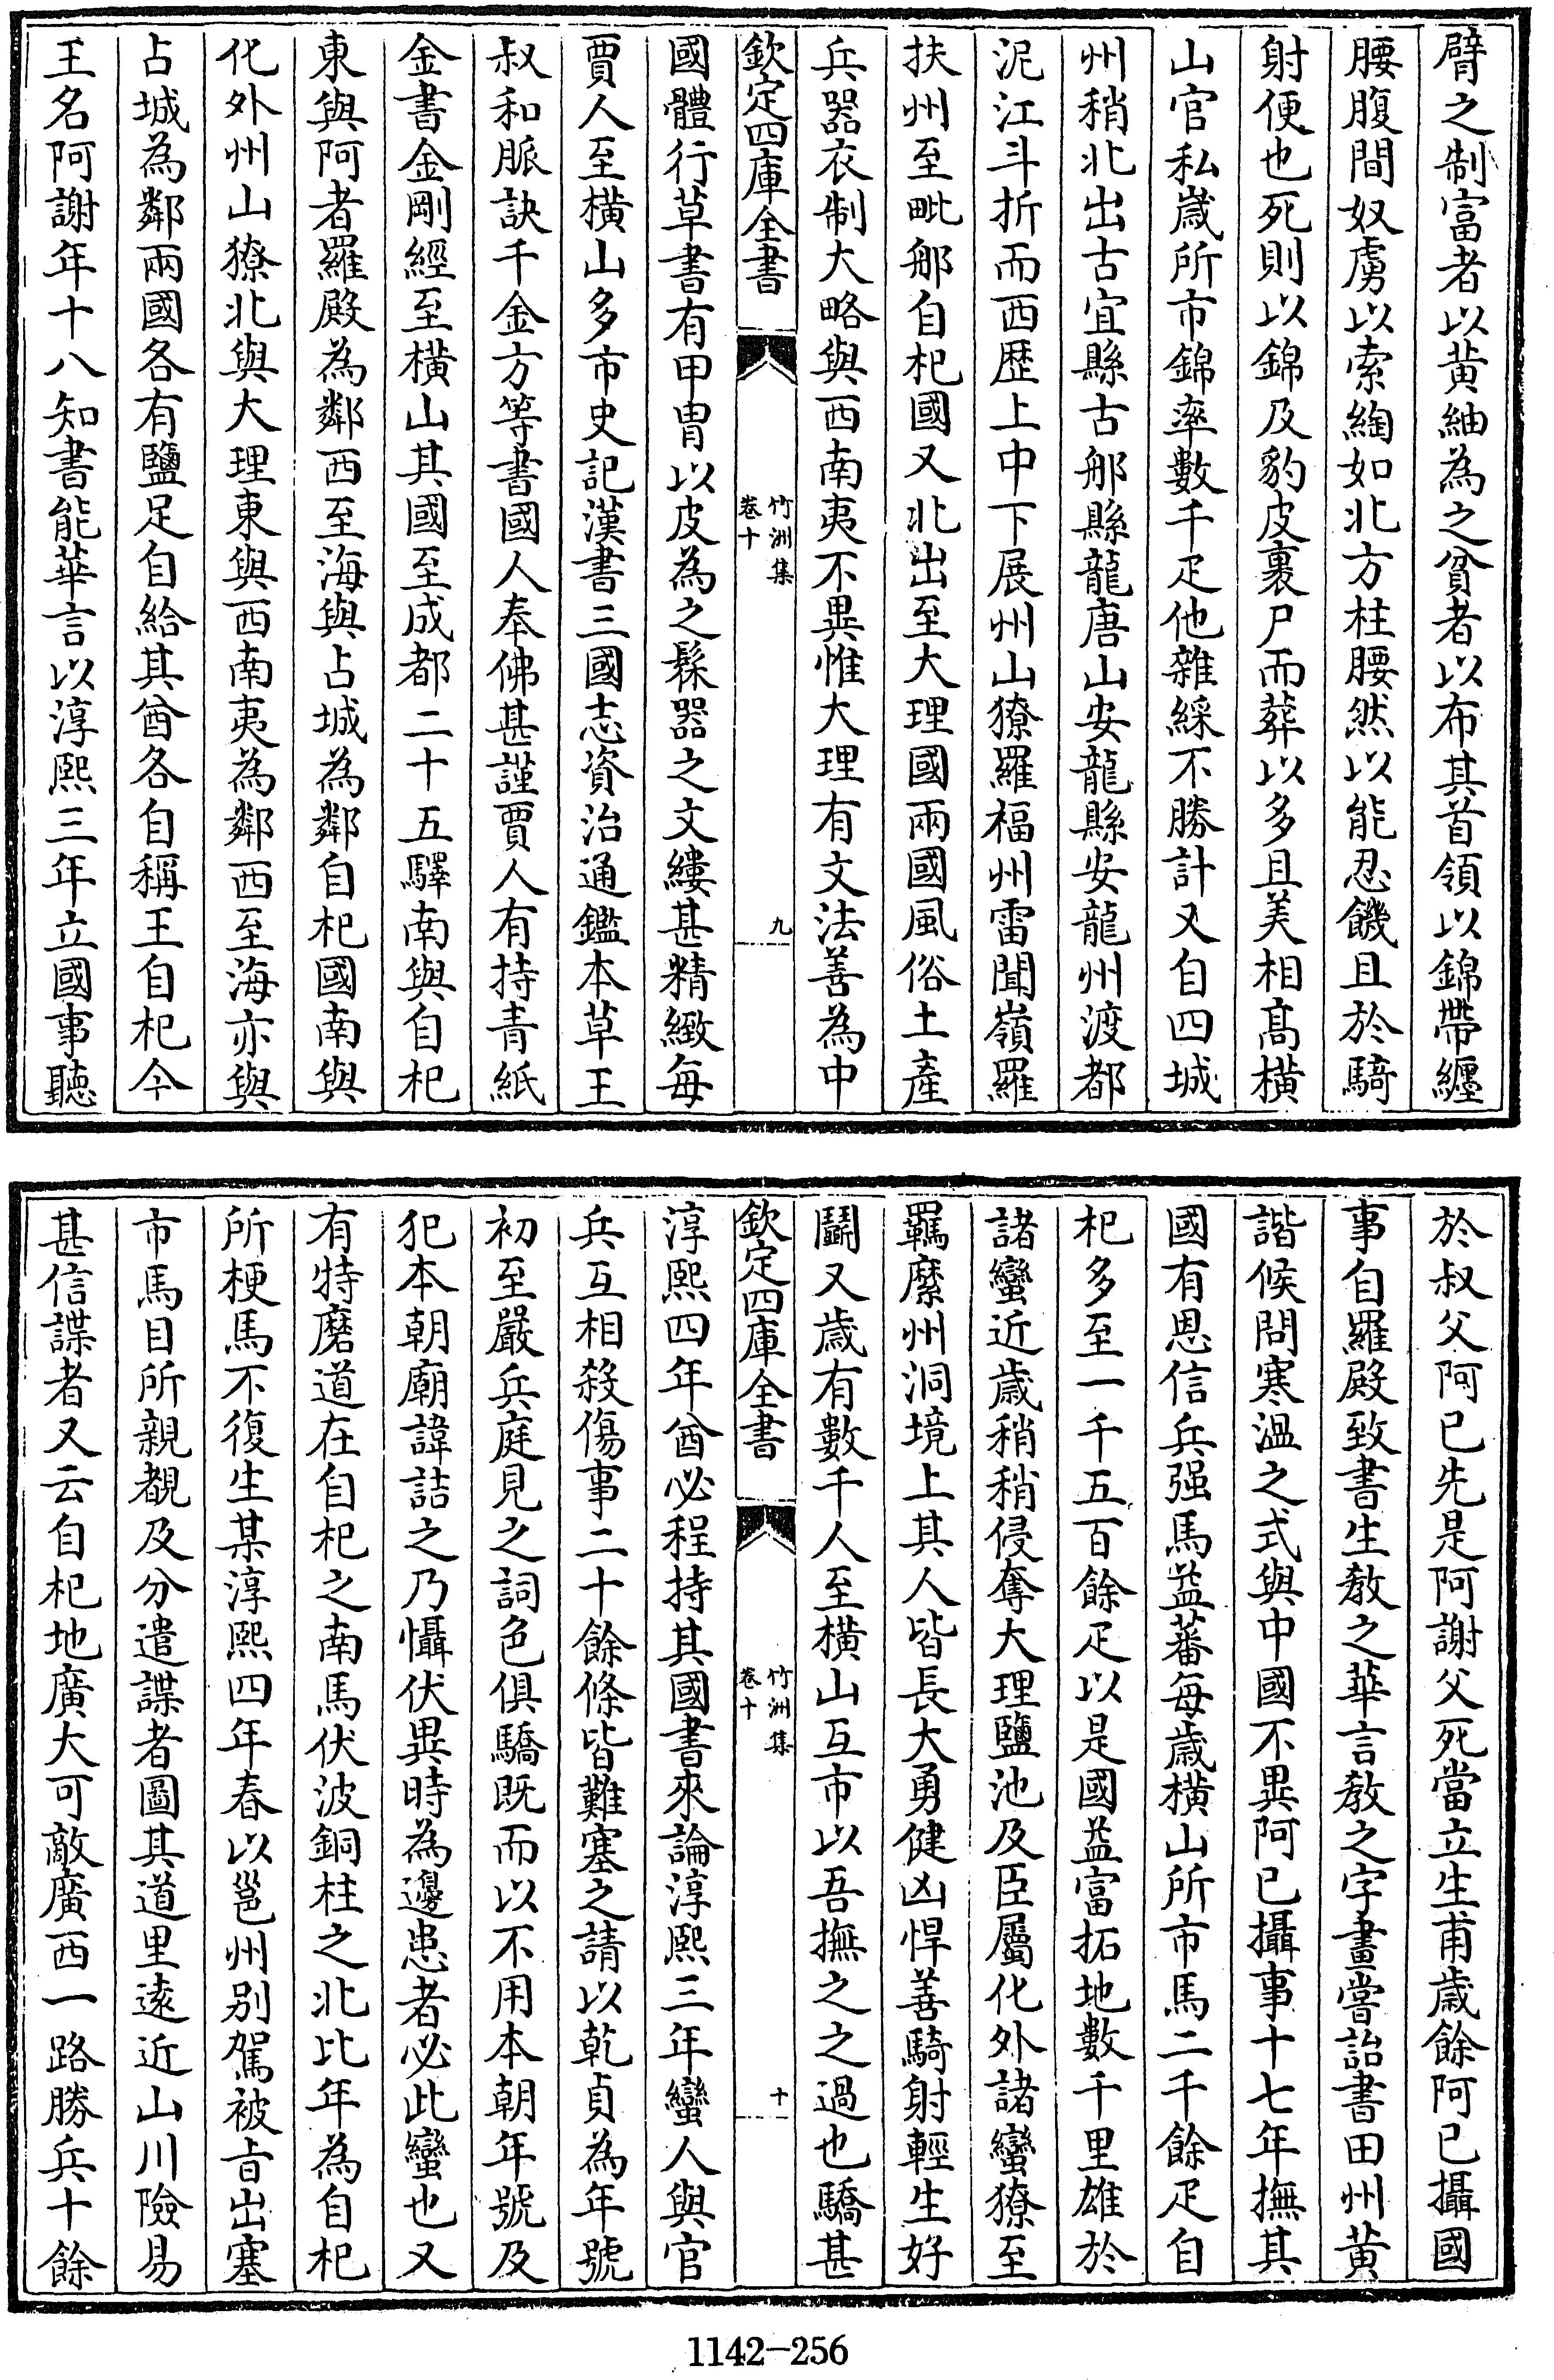 臂之制富者以黄紬為之貧者以布其首領以錦帶纏
腰腹間奴虜以索綯如北方柱腰然以能忍饑且於騎
射便也死則以錦及豹皮裏尸而葬以多且美相髙横
山官私嵗所市錦率數千疋他雜綵不勝計又自四城
州稍北出古宜縣古郍縣龍唐山安龍縣安龍州渡都
泥江斗折而西歴上中下展州山獠羅福州雷聞嶺羅
扶州至毗郍自杞國又北出至大理國兩國風俗土産
兵器衣制大略與西南夷不異惟大理有文法善為中
欽定四庫全書
竹洲集
卷十
九
國體行草書有甲胄以皮為之髹器之文縷甚精緻每
賈人至横山多市史記漢書三國志資治通鑑本草王
叔和脈訣千金方等書國人奉佛甚謹賈人有持青紙
金書金剛經至横山其國至成都二十五驛南與自杞
東與阿者羅殿為鄰西至海與占城為鄰自杞國南與
化外州山獠北與大理東與西南夷為鄰西至海亦與
占城為鄰兩國各有鹽足自給其酋各自稱王自杞今
王名阿謝年十八知書能華言以淳熙三年立國事聽
於叔父阿已先是阿謝父死當立生甫嵗餘阿已攝國
事自羅殿致書生教之華言教之字畫嘗詒書田州黄
諧候問寒温之式與中國不異阿已攝事十七年撫其
國有恩信兵强馬益蕃每嵗横山所市馬二千餘疋自
杞多至一千五百餘疋以是國益富拓地數千里雄於
諸蠻近嵗稍稍侵奪大理鹽池及臣屬化外諸蠻獠至
羈縻州洞境上其人皆長大勇健凶悍善騎射輕生好
鬭又嵗有數千人至横山互市以吾撫之之過也驕甚
欽定四庫全書
竹洲集
卷十
十
淳熙四年酋必程持其國書來論淳熙三年蠻人與官
兵互相殺傷事二十餘條皆難塞之請以乾貞為年號
初至嚴兵庭見之詞色俱驕既而以不用本朝年號及
犯本朝廟諱詰之乃懾伏異時為邊患者必此蠻也又
有特磨道在自杞之南馬伏波銅柱之北比年為自杞
所梗馬不復生某淳熙四年春以邕州别駕被㫖出塞
市馬目所親覩及分遣諜者圖其道里逺近山川險易
甚信諜者又云自杞地廣大可敵廣西一路勝兵十餘
1142-256